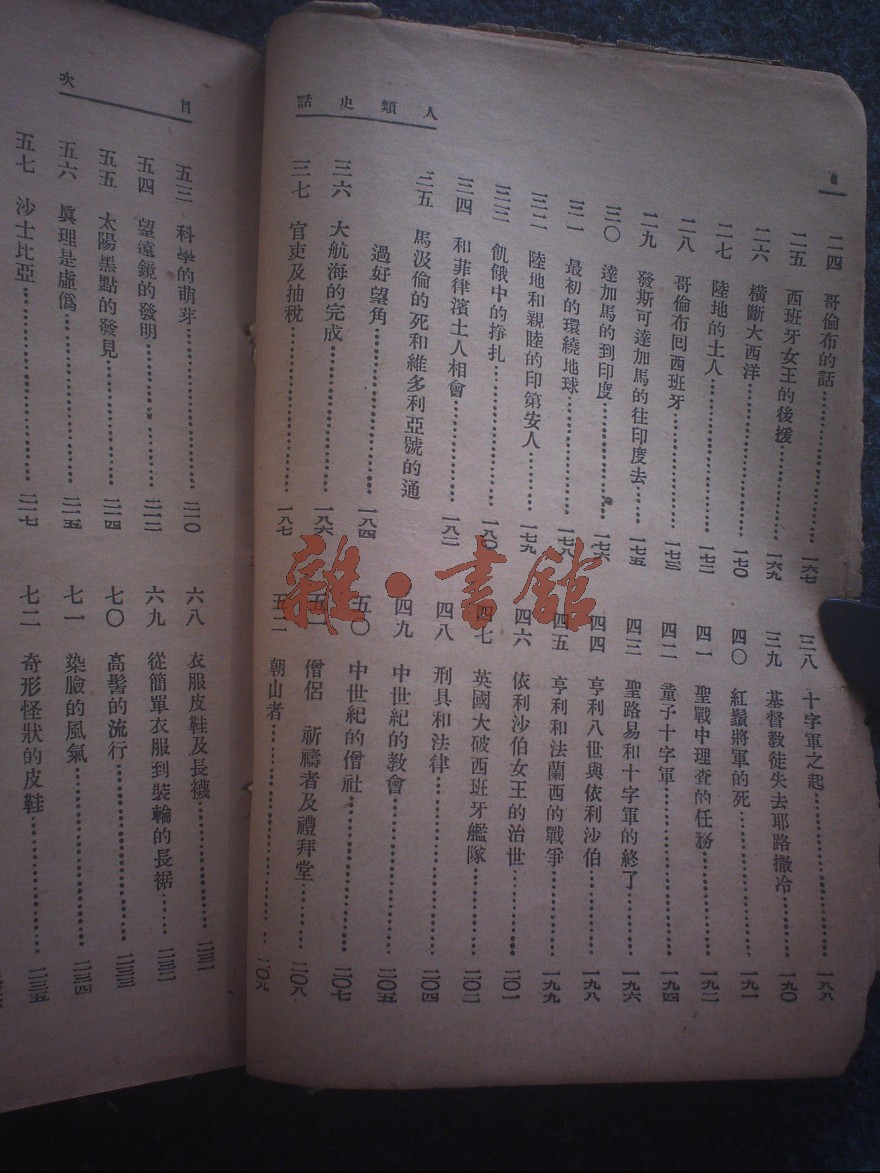 6
人類史話
二四 哥倫布的話 一六七
二五 西班牙女王的後援 一六九
二六 橫斷大西洋 一七〇
二七 陸地的土人 一七二
二八 哥倫布囘西班牙 一七三
二九 發斯可達加馬的往印度去 一七五
三〇 達加馬的到印度 一七六
三一 最初的環繞地球 一七八
三二 陸地和親陸的印第安人 一七九
三三 飢餓中的掙扎 一八〇
三四 和菲律濱土人相會 一八二
三五 馬汲倫的死和維多利亞號的通
過好望角 一八四
三六 大航海的完成 一八六
三七 官吏及抽稅 一八七
三八 十字軍之起 一八八
三九 基督教徒失去耶路撒冷 一九〇
四〇 紅鬚將軍的死 一九一
四一 聖戰中理查的任務 一九二
四二 童子十字軍 一九四
四三 聖路易和十字軍的終了 一九六
四四 亨利八世與依利沙伯 一九八
四五 亨利和法蘭西的戰爭 一九九
四六 依利沙伯女王的治世 二〇一
四七 英國大破西班牙艦隊 二〇二
四八 刑具和法律 二〇四
四九 中世紀的教會 二〇五
五〇 中世紀的僧社 二〇七
五一 僧侶 祈禱者及禮拜堂 二〇八
五二 朝山者 二〇九
目次
五三 科學的萌芽 二一〇
五四 望遠鏡的發明 二一二
五五 太陽黑點的發見 二一四
五六 眞理是虛僞 二一五
五七 沙士比亞 二一七
六八 衣服皮鞋及長襪 二三一
六九 從簡單衣服到裝輪的長裾 二三二
七〇 高髻的流行 二三三
七一 染臉的風氣 二三四
七二 奇形怪狀的皮鞋 二三五
雜·書館